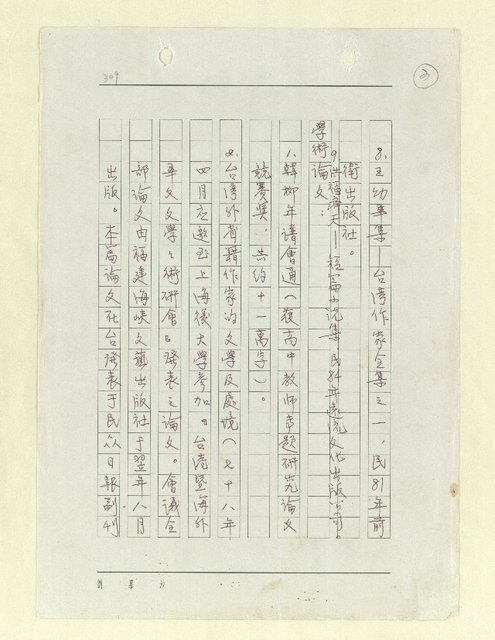 309
②
8.王幼華集—台灣作家全集之一,民81年前
衛出版社。
9.洪福齊天—短篇小說集 民84年遠流文化出版公司。
學術論文:
1.韓柳年譜會通(獲高中教師專題研究論文
競賽獎,共約十一萬字)。
2.台灣外省籍作家的文學及處境(七十八年
四月應邀至上海復大學參加「台港暨海外
華文文學學術研會」發表之論文。會議全
部論文由福建海峽文藝出版社于翌年八月
出版。本篇論文在台發表于民眾日報副刊